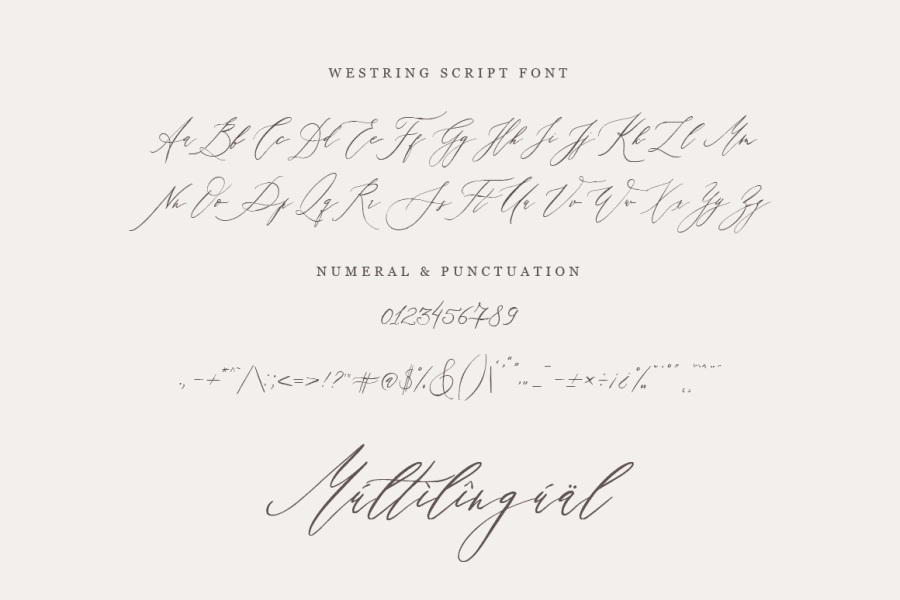 WESTRING SCRIPT FONT
Aa Bb Cc Dd Ee Ff Gg Hh Ii Jj Kk Ll Mm
Nn Oo Pp Qq Rr Ss Tt Uu Vv Ww Xx Yy Zz
NUMERAL & PUNCTUATION
0123456789
., -+*^~/\:;<=>!?'"#@$%&()|
Múltìlîngúäl